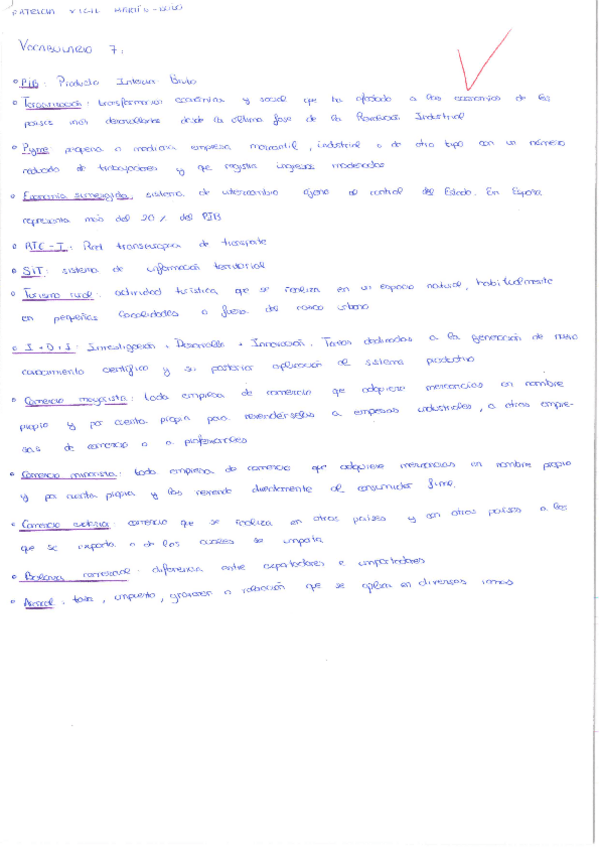 PATRICIA VIGIL MARTÍN-LUIS
VOCABULARIO 7.
• PIB: Producto Interior Bruto
• Terciarización: transformación económica y social que ha afectado a las economías de los
países más desarrollados desde la última fase de la Revolución Industrial
• Pyme: pequeña o mediana empresa mercantil, industrial o de otro tipo con un número
reducido de trabajadores y que registra ingresos moderados
• Economía sumergida: sistema de intercambio ajeno al control del Estado. En España
representa más del 20% del PIB
• RTE-T: Red transeuropea de transporte
• SIT: sistema de información territorial
• Turismo rural: actividad turística que se realiza en un espacio natural, habitualmente
en pequeñas localidades o fuera del casco urbano
• I+D+I: Investigación + Desarrollo + Innovación. Tareas dedicadas a la generación de nuevo
conocimiento científico y su posterior aplicación al sistema productivo
• Comercio mayorista: toda empresa de comercio que adquiere mercancías en nombre
propio y por cuenta propia para revendérselas a empresas industriales, a otras empre-
sas de comercio o a profesionales
• Comercio minorista: toda empresa de comercio que adquiere mercancías en nombre propio
y por cuenta propia y las revende directamente al consumidor final.
• Comercio exterior: comercio que se realiza en otros países y con otros países a los
que se exporta o de los cuales se importa
• Balanza comercial: diferencia entre exportaciones e importaciones
• Arancel: tasa, impuesto, gravamen o valoración que se aplica en diversos ramos